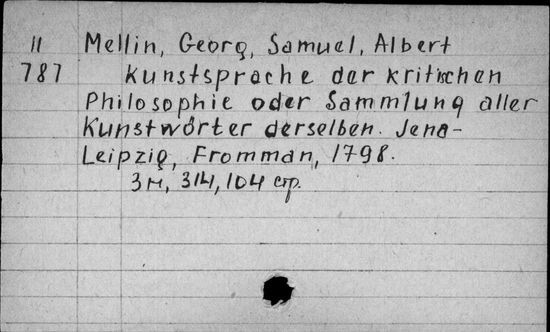 II Mellin, Georg, Samuel, Albert
787 Kunstsprache der kritischen
Philosophie oder Sammlung aller
Kunstwörter derselben. Jena-
Leipzig, Fromman, 1798.
314, 104 стр.